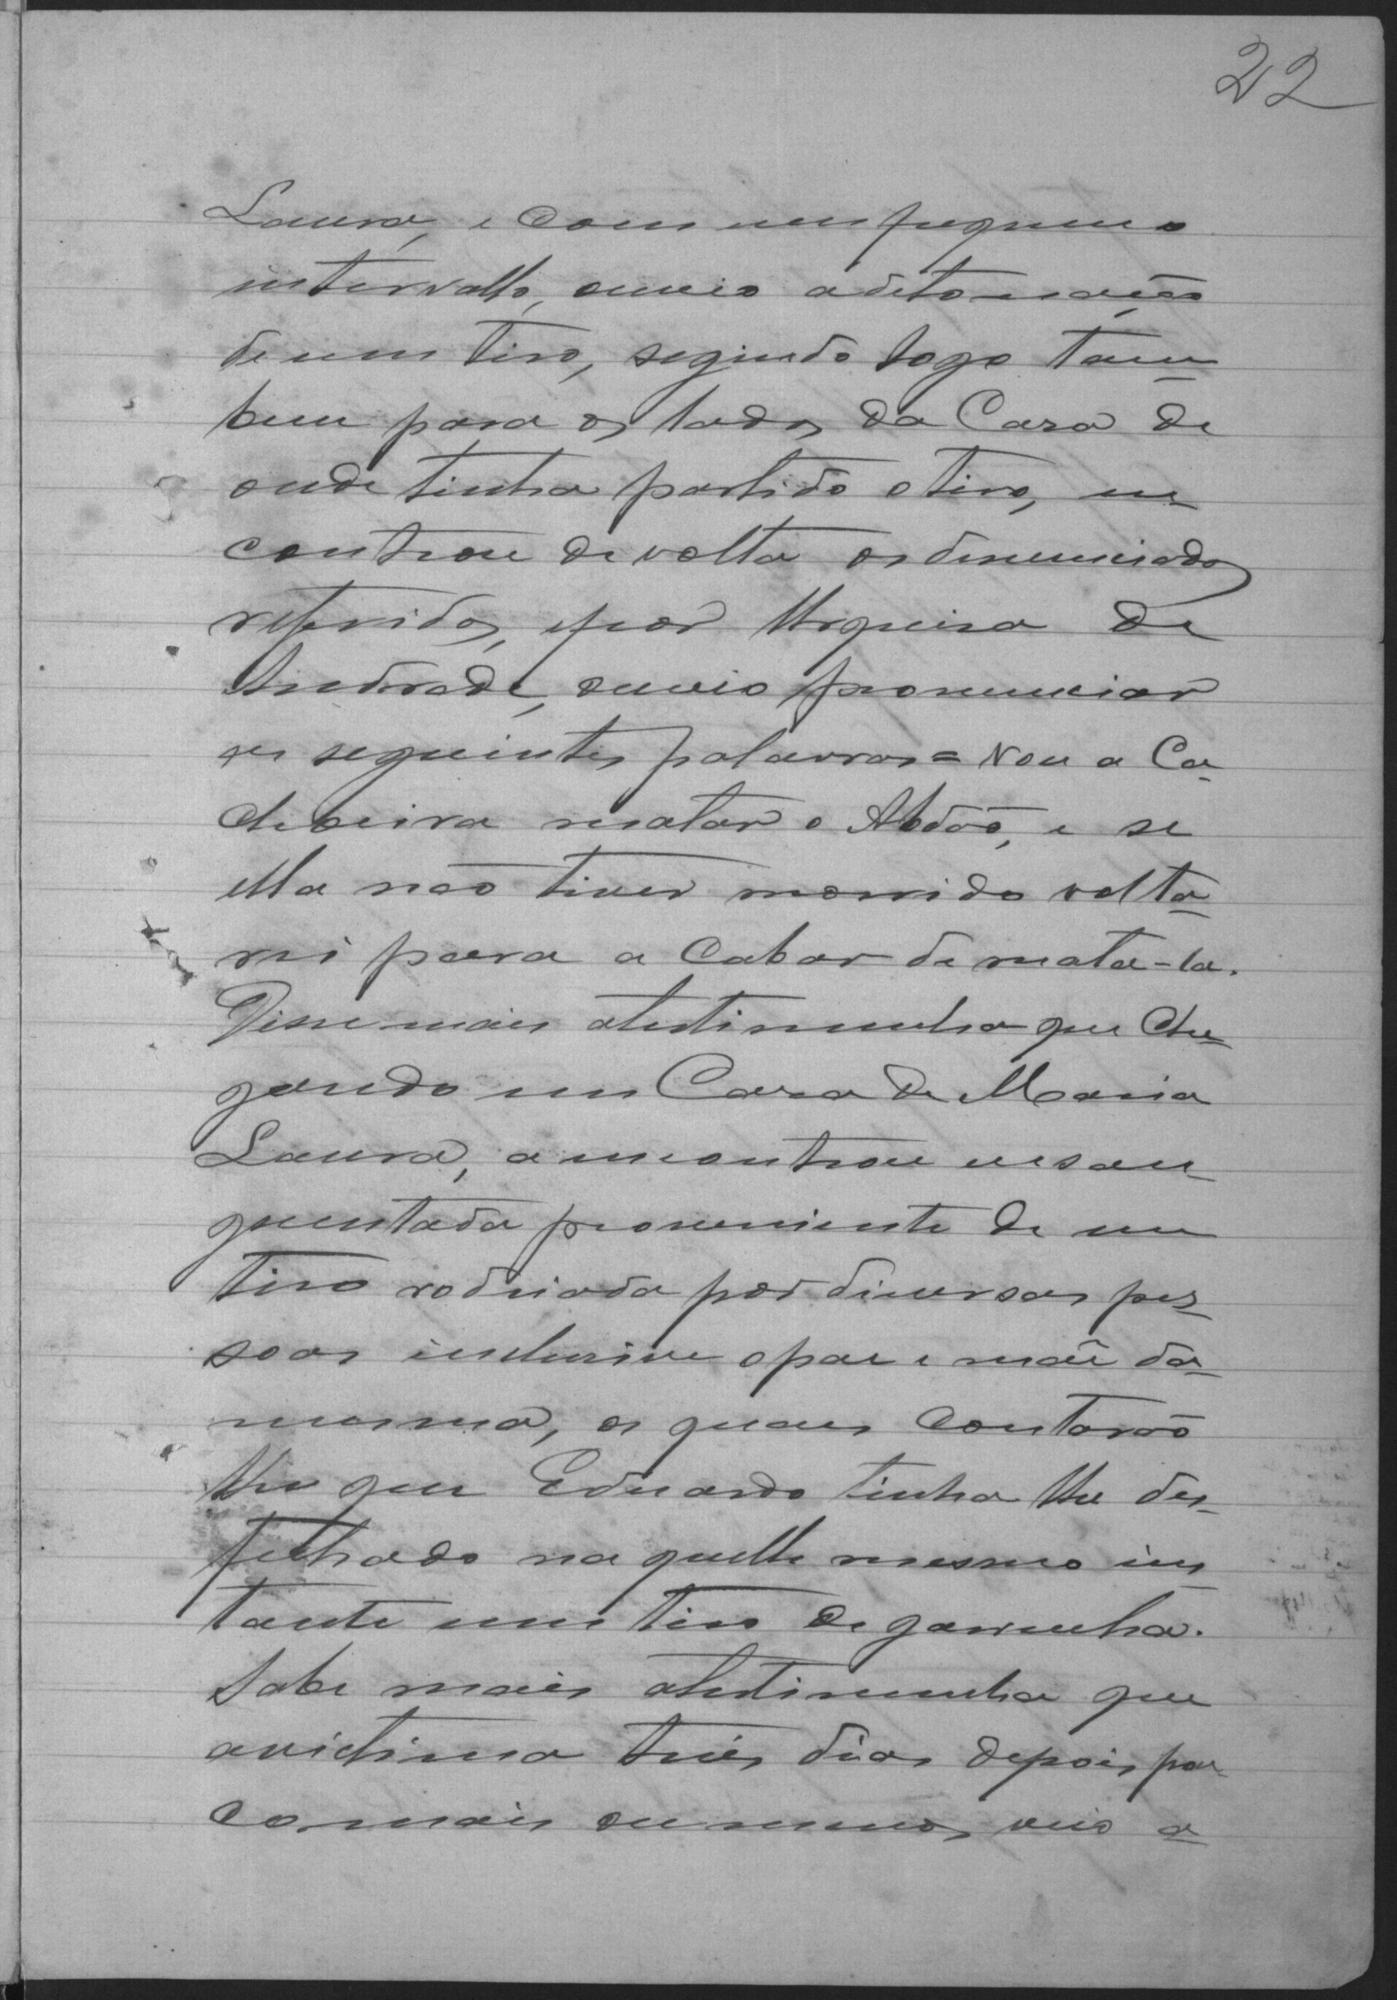 22
Laura, e com um pequeno
intervallo, ouvio a detonação
de um tiro, seguindo logo tam
bem para os lados da Casa de
onde tinha partido o tiro, en
controu de volta os denunciados
referidos, e por Urquisa de
Andrade, ouvio pronunciar
as seguintes palavras = Vou a Ca
choeira matar o Abdão, e se
ella não tiver morrido volta
rei para a cabar de mata-la.
Disse mais a testimunha que che
gando em Casa de Maria
Laura, a encontrou ensan
guentada proveniente de um
tiro rodeiada por diversas pes
soas inclusive o pae e mãe da
mesma, os quaes contarão
lhe que Eduardo tinha lhe des
fechado na quelle mesmo ins
tante um tiro de garrucha.
Sabe mais a testimunha que
a victima tres dias depois, pou
co, mais ou menos, veio a